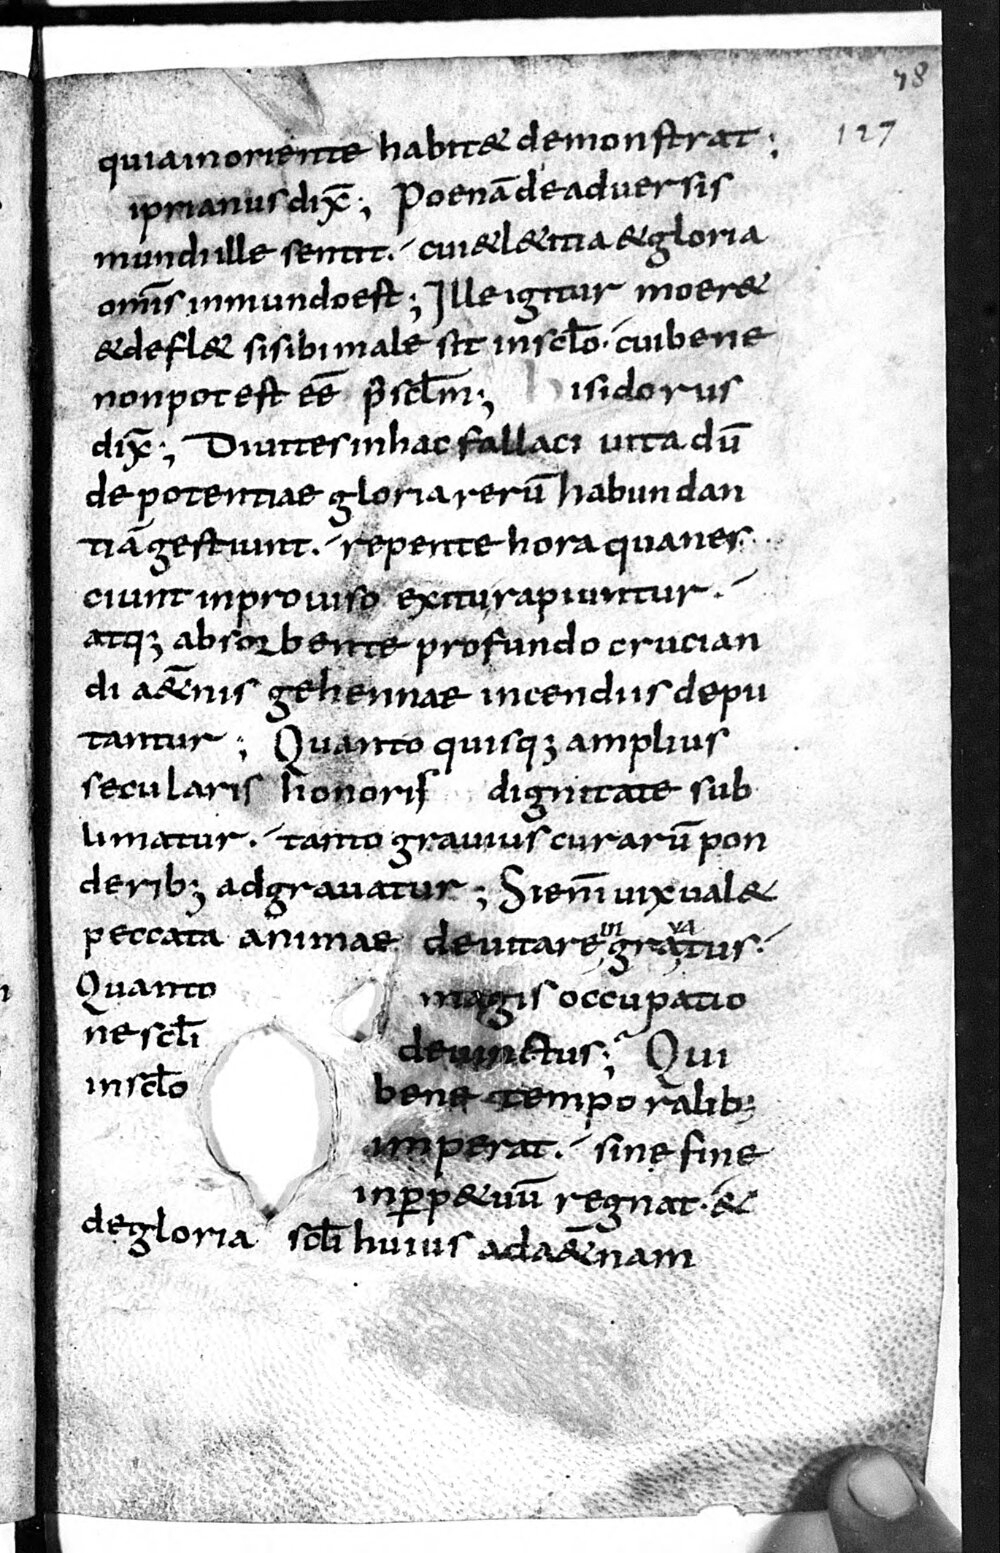 78
127
quiainoriente habit& demonstrat;
iprianus dix̄; Poenā de aduersis
mundi ille sentit. cui & l&itia & gloria
om̄is inmundo est; Ille igitur moer&
& defl& si sibi male sit in scło. cui bene
non potest eē p̄ scłm; hisidorus
dix̄; Diuites in hac fallaci uita dū
de potentiae gloria rerū habundan
tiā gestiunt. repente hora qua nes
ciunt inprouiso exitu rapiuntur.
atq; absorbente profundo crucian
di a&̄nis gehennae incendiis depu
tantur; Quanto quisq; amplius
secularis honoris dignitate sub
limatur. tanto grauius curarū pon
derib; adgrauatur; Si enī uix ual&
peccata animae deuitare in gra ua tus.
Quanto magis occupatio
ne scłi deuinctus; Qui
in scło bene temporalib;
imperat. sine fine
in p̱p&uū regnat. &
de gloria scłi huius ad a&̄nam